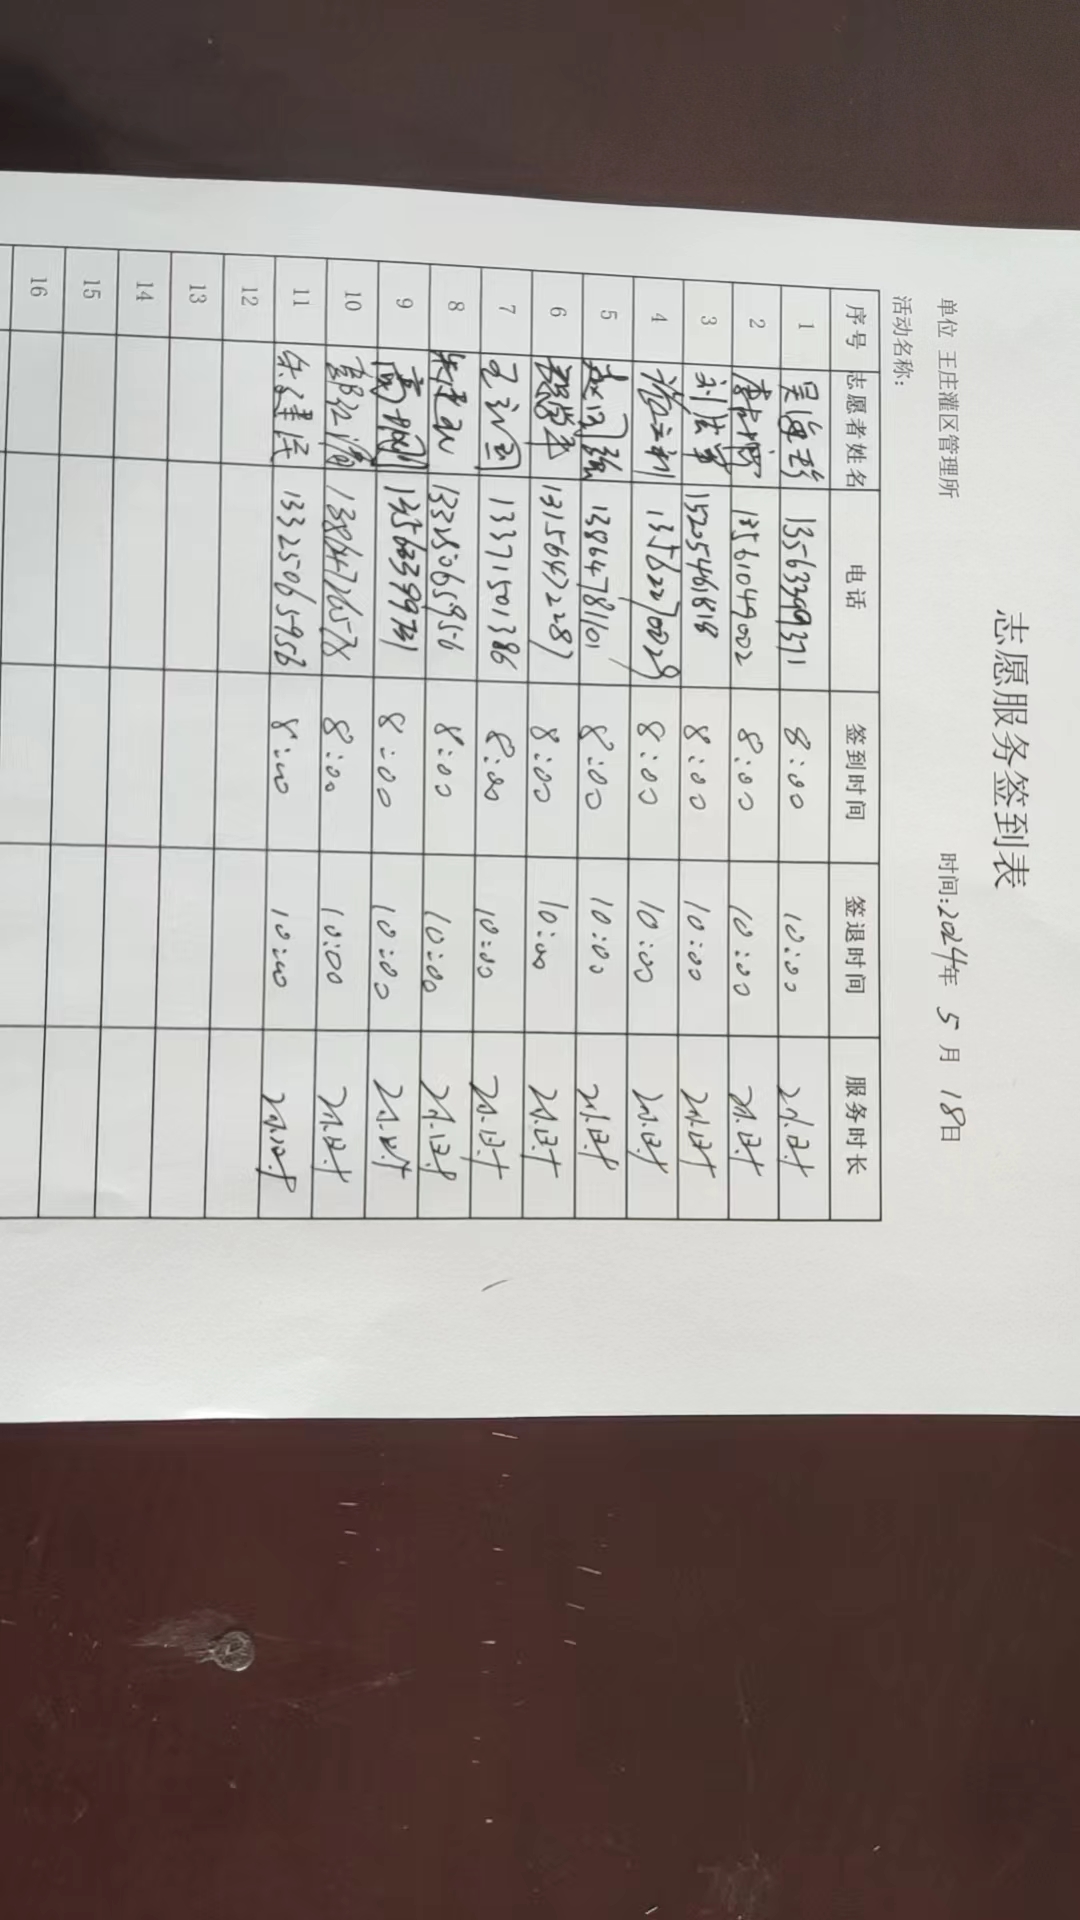 志愿服务签到表
单位 王庄灌区管理所 时间:2024年 5 月 18日
活动名称:
序号 志愿者姓名 电话 签到时间 签退时间 服务时长
1 吴海彬 13563299371 8:00 10:00 2小时
2 13561049002 8:00 10:00 2小时
3 刘法军 15205461818 8:00 10:00 2小时
4 8:00 10:00 2小时
5 赵同强 13864778101 8:00 10:00 2小时
6 13156472287 8:00 10:00 2小时
7 13371501386 8:00 10:00 2小时
8 13325065956 8:00 10:00 2小时
9 高明 8:00 10:00 2小时
10 8:00 10:00 2小时
11 朱建民 13325065956 8:00 10:00 2小时
12
13
14
15
16